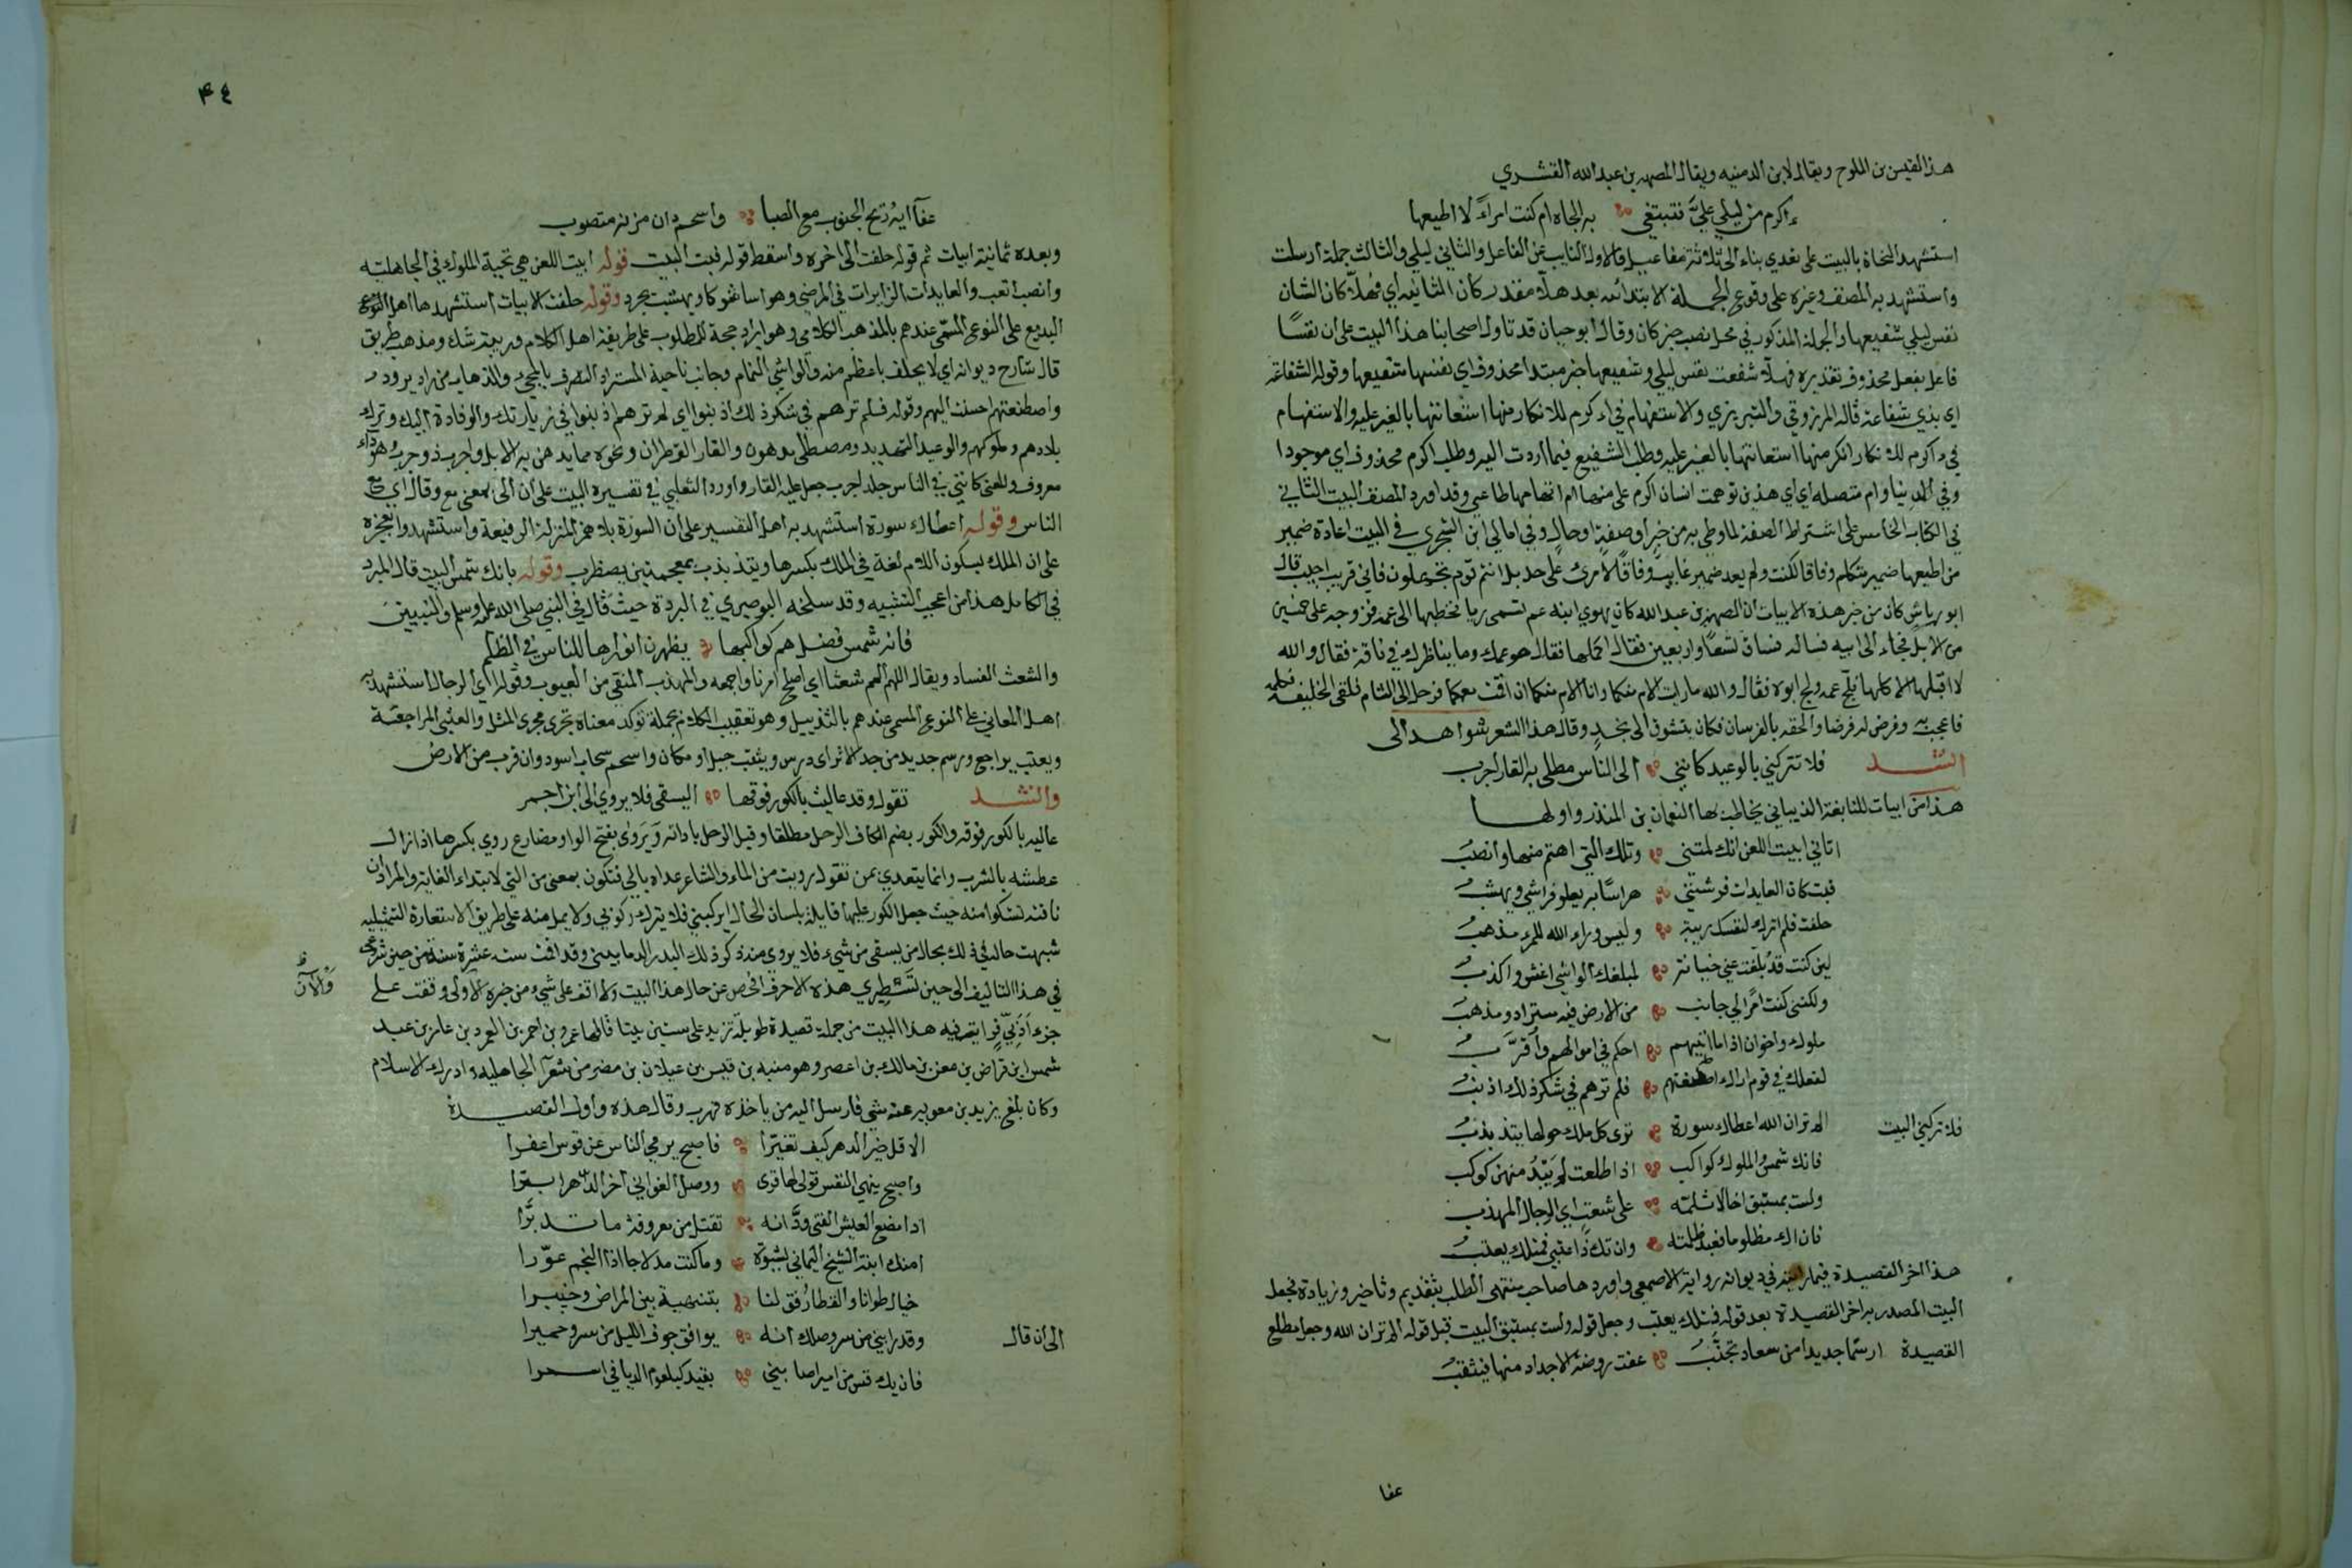 هذا لقيس بن الملوح ويقال لابن الدمنيه ويقال للصمه بن عبد الله القشري
ءاكرم من ليلي عليَّ فتبتغي به الجاه ام كنت امرأً لا اطيعها
استشهد النحاة بالبيت على تعدي بناء الى ثلاثة مفاعيل فالاول النايب عن الفاعل والثاني ليلي والثالث جملة ارسلت
واستشهد به المصنف وغيره على وقوع الجملة الابتدائيه بعد هلا مقدر كان الشانيه اي فهلا كان الشان
نفس ليلي شفيعها والجملة المذكور في محل نصب خبر كان وقال ابو حيان قد تاول اصحابنا هذا البيت على ان نفسًا
فاعل بفعل محذوف تقديره فهلا شفعت نفس ليلي وشفيعها خبر مبتدا محذوف اي نفسها شفيعها وقوله الشفاعة
اي بذي شفاعة قاله المرزوقي والتبريزي والاستفهام في ءاكرم للانكار منها استعانتها بالغير عليه والاستفهام
في ءاكرم للانكار انكر منها استعانتها بالغير عليه وطلب الشفيع فيما اردت اليه وطلب اكرم محذوف اي موجودا
وفي الدنيا وام متصله اي اي هذين توهمت انسان اكرم على منها ام اتهامها طاعتي وقد اورد المصنف البيت الثاني
في الكتاب الخامس على اشتراط الصفة لما وطي به من خبر او صفة او حال وفي امالي ابن الشجري في البيت اعادة ضمير
من اطيعها ضمير متكلم وفاقا لكنت ولم يعد ضمير غايب وفاقًا لامرئ على حد بل انتم قوم تجهلون فاني قريب اجيب قال
ابو رياش كان من خبر هذه الابيات ان الصمه بن عبد الله كان يهوي ابنه عم تسمى ريا فخطبها الى عمه فزوجه على خمسين
من الابل فجاء الى ابيه فساله فساق تسعًا واربعين فقال اكملها فقال هو عمك وما يناظرك في ناقة فقال والله
لا اقبلها الا كلها فلج عمه ولج ابوه فقال والله ما رايت الام منكما وانا الام منكما ان اقمت معكما فرحل الى الشام فلقى الخليفة فكلمه
فاعجب به وفرض له فرضا والحقه بالفرسان فكان يتشوق الى نجدٍ وقال هذا الشعر شواهد الى
انشد فلا تتركني بالوعيد كانني الى الناس مطلي به القار اجرب
هذا من ابيات للنابغة الذبياني يخاطب بها النعمان بن المنذر واولها
اتاني ابيت اللعن انك لمتني وتلك التي اهتم منها وانصبُ
فبت كان العايدات فرشنني هراسًا به يعلو فراشي ويقشبُ
حلفت فلم اترك لنفسك ريبة وليس وراء الله للمرء مذهبُ
لين كنت قد بلغت عني خيانة لمبلغك الواشي اغش واكذبُ
ولكنني كنت امرًا لي جانب من الارض فيه مستراد ومذهبُ
ملوك واخوان اذا ما اتيتهم احكم في اموالهم واقرَّبُ
كفعلك في قوم اراك اصطنعتهم فلم ترهم في شكر ذلك اذنبُ
فلا تتركني البيت
الم تر ان الله اعطاك سورة ترى كل ملك حولها يتذبذبُ
فانك شمس والملوك كواكب اذا طلعت لم يَبْدُ منهن كوكب
ولست بمستبق اخا لا تلمه على شعث اي الرجال المهذب
فان اك مظلوما فعبد ظلمته وان تك ذا عتبى فمثلك يعتبُ
هذا اخر القصيدة فيما رايته في ديوانه رواية الاصمعي واوردها صاحب منتهى الطلب بتقديم وتاخير وزيادة فجعل
البيت المصدر به اخر القصيدة بعد قوله فمثلك يعتب وجعل قوله ولست بمستبق البيت قبل قوله الم تر ان الله وجعل مطلع
القصيدة ارسمًا جديدا من سعاد تجنَّبُ عفت روضة الاجداد منها فيثقبُ
عفا
٤٤
عفا ايه ريح الجنوب مع الصبا واسحم دان مزنه متصوب
وبعده ثمانية ابيات ثم قوله حلفت الى اخره واسقط قوله فبت البيت قوله ابيت اللعن هي تحية الملوك في الجاهلية
وانصب اتعب والعايدات الزايرات في المرض وهراسا شوكا ويقشب يجرد وقوله حلفت الابيات استشهد بها اهل
البديع على النوع المسمى عندهم بالمذهب الكلامي وهو ايراد حجة للمطلوب على طريقة اهل الكلام وريبة شك ومذهب طريق
قال شارح ديوانه اي لا يحلف باعظم منه والواشي النمام وجانب ناحية المستراد التصرف بالمجيء والذهاب من راد يرود
واصطنعتهم احسنت اليهم وقوله فلم ترهم في شكر ذلك اذنبوا اي لم ترهم اذنبوا في زيارتك والوفادة اليك وترك
بلادهم وملوكهم والوعيد التهديد ومصطلى مدهون والقار القطران ونحوه مما يدهن به الابل واجرب ذو جرب وهو داء
معروف والمعنى كانني في الناس جلد اجرب جعل عليه القار واورد الثعلبي في تفسيره البيت على ان الى بمعنى مع وقال اي مع
الناس وقوله اعطاك سورة استشهد به اهل التفسير على ان السورة بلا همز المنزلة الرفيعة واستشهدوا بعجزه
على ان الملك بسكون اللام لغة في الملك بكسرها ويتذبذب بمعجمتين يضطرب وقوله بانك شمس البيت قال المبرد
في الكامل هذا من اعجب التشبيه وقد سلخه البوصيري في البردة حيث قال في النبي صلى الله عليه وسلم والنبيين
فانه شمس فضل هم كواكبها يظهرن انوارها للناس في الظلم
والشعث الفساد ويقال اللهم المم شعثنا اي اصلح امرنا واجمعه والمهذب المنقى من العيوب وقوله اي الرجال استشهد به
اهل المعاني على النوع المسمى عندهم بالتذييل وهو تعقيب الكلام بجملة توكد معناه تجري مجرى المثل والعتبى المراجعة
ويعتب يراجع ورسم جديد من جد الاثر اي درس ويثقب جبل او مكان واسحم سحاب اسود وان قرب من الارض
وانشد تقول وقد عاليت بالكور فوقها ايسقى فلا يروى الى ابن احمر
عاليه بالكور فوقه والكور بضم الكاف الرحل مطلقا وقيل الرحل باداته وَيَروى بفتح الواو مضارع روي بكسرها اذا زال
عطشه بالشرب وانما يتعدي بمن تقول رويت من الماء والشاعر عداه بالى فتكون بمعنى من التي لابتداء الغاية والمراد ان
ناقته تشكو منه حيث جعل الكور عليها قايلة بلسان الحال ايركبني فلا يترك ركوبي ولا يمل منه على طريق الاستعارة التمثيلية
شبهت حاله في ذلك بحال من يسقى من شيء فلا يروى منه ذكر ذلك البدر الدماميني وقد اقمت ست عشرة سنة من حين شرعي
في هذا التاليف الى حين تَسْطِيري هذه الاحرف افحص عن حال هذا البيت ولم اقف على شيء من خبره الاولى وقفت على
والآن
جزء فيه هذا البيت من جملة قصيدة طويلة تزيد على ستين بيتا قالها عمرو بن احمر بن العمرد بن عامر بن عبد
شمس ابن قراض بن معن بن مالك بن اعصر وهو منبه بن قيس بن عيلان بن مضر من شعرآ الجاهليه وادرك الاسلام
وكان بلغ يزيد بن معويه عنه شي فارسل اليه من ياخذه فهرب وقال هذه واول القصيدة
الا قل خير الدهر كيف تغيرا فاصبح يرمي الناس عن قوس اعفرا
واصبح ينهي النفس قولى لها قرى ووصل الغواني اخر الدهر ابترا
اذا مضغ العيش الفتى ودَّ انه تقتل من معروفة ما تدبرَّا
امنك ابنة الشيخ اليماني بشبوة وما كنت مدلاجا اذا النجم غوّرا
خيال طوانا والقطار فق لنا بتنهية بين المراض وخيبرا
الى ان قال
وقد رابني من سر وصلك انه يوافق جوف الليل من سر وحميرا
فان يك قس من امير اصابني بقيد كبلعوم الدبا في اسمرا